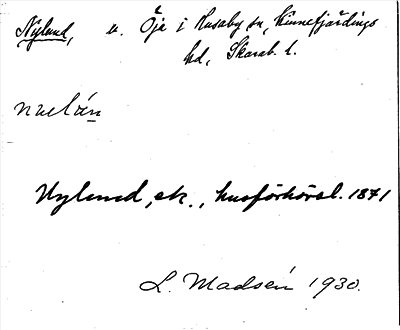 Nylund, u. Öja i Husaby sn, Kinnefjärdings
hd, Skarab. l.
Nylund, sk., husförhörsl. 1871
L. Madsén 1930.